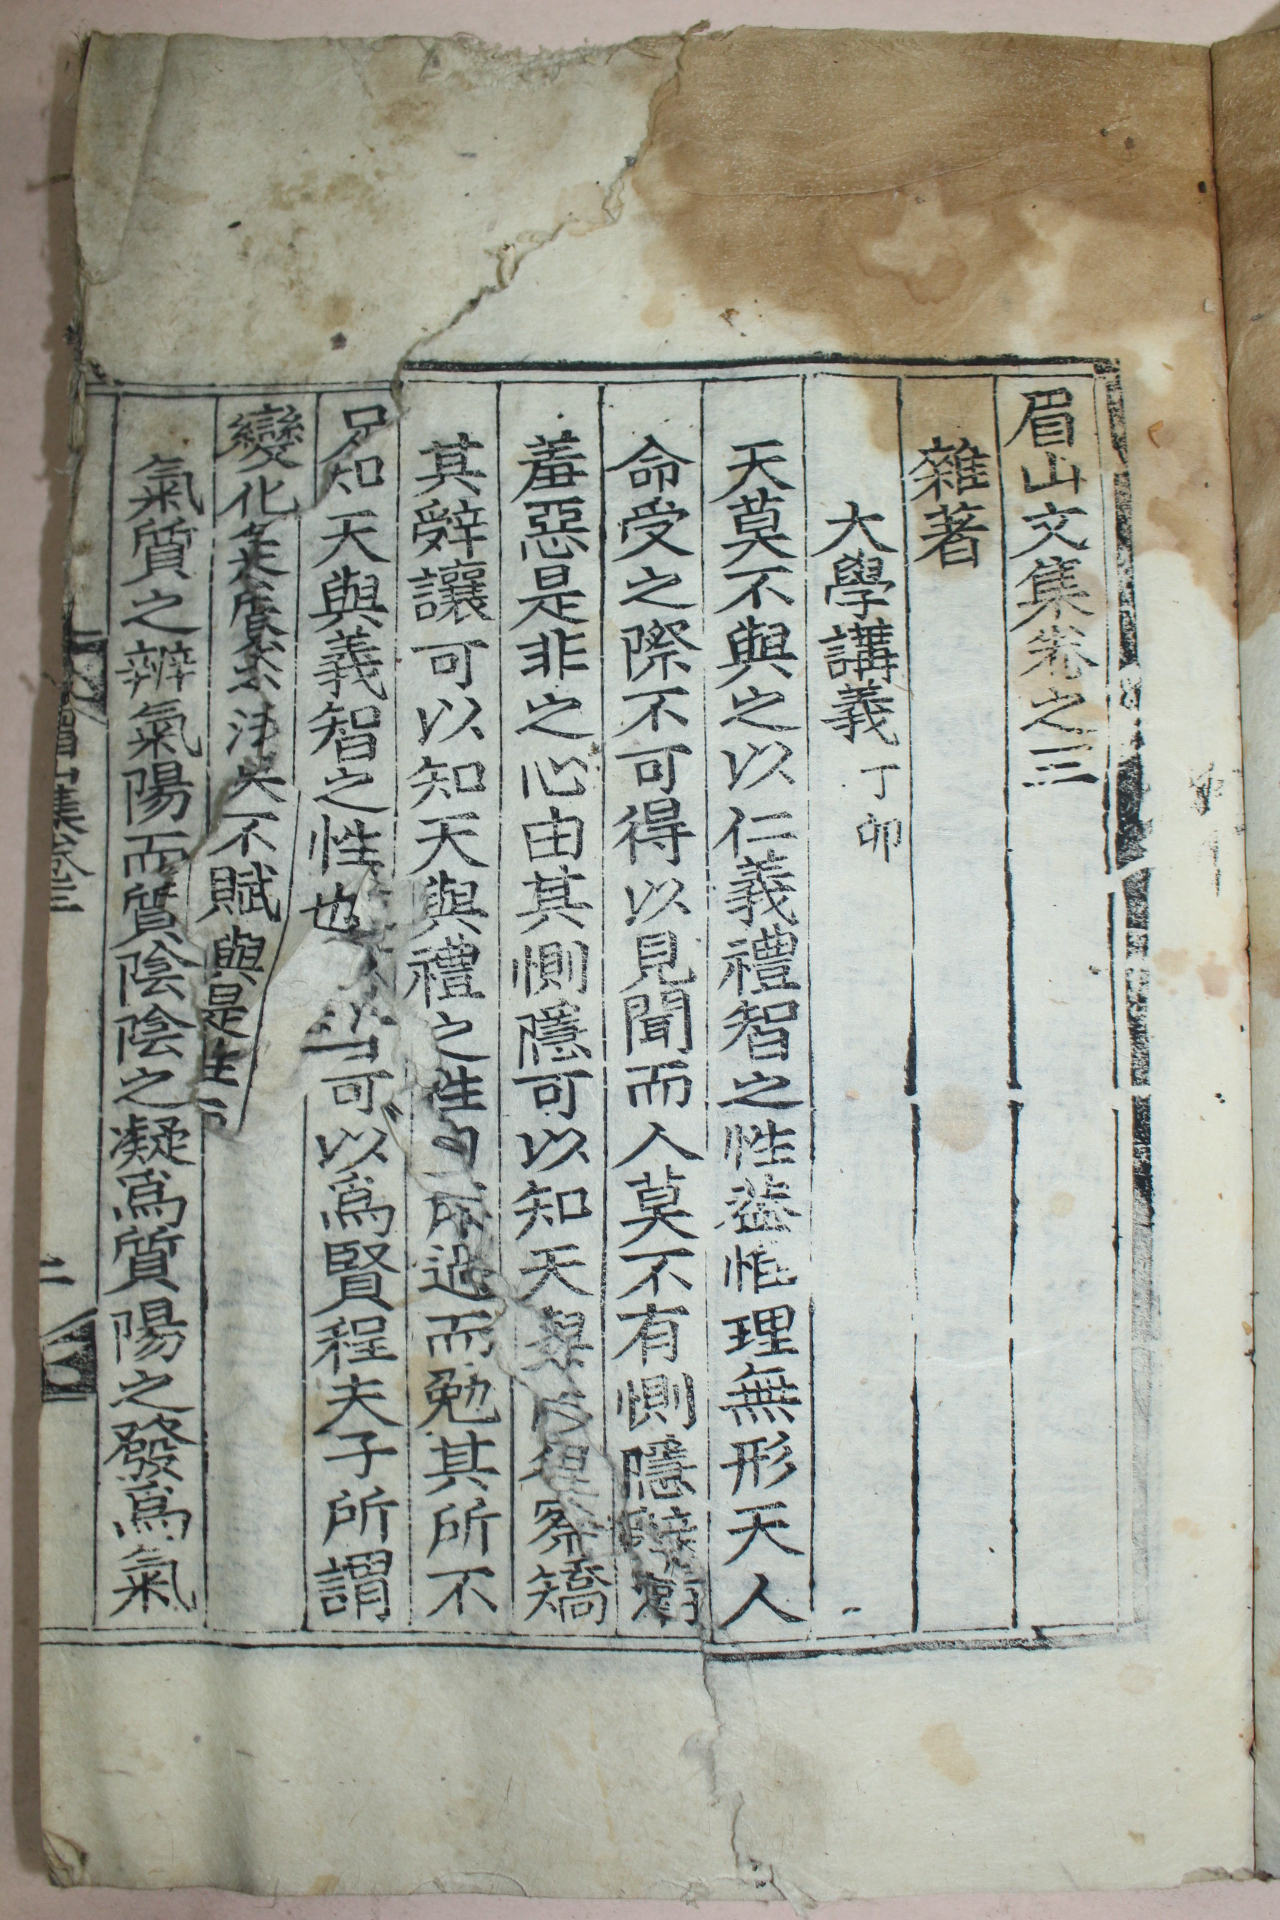 眉山文集卷之三
雜著
大學講義 丁卯
天莫不與之以仁義禮智之性蓋惟理無形天人
命受之際不可得以見聞而人莫不有惻隱辭
羞惡是非之心由其惻隱可以知天與 察矯
其辭讓可以知天與禮之性 過而勉其所不
足知天與義智之性也 可以爲賢程夫子所謂
變化氣質 不賦與是性
氣質之辨氣陽而質陰陰之凝爲質陽之發爲氣
眉山集卷三
二